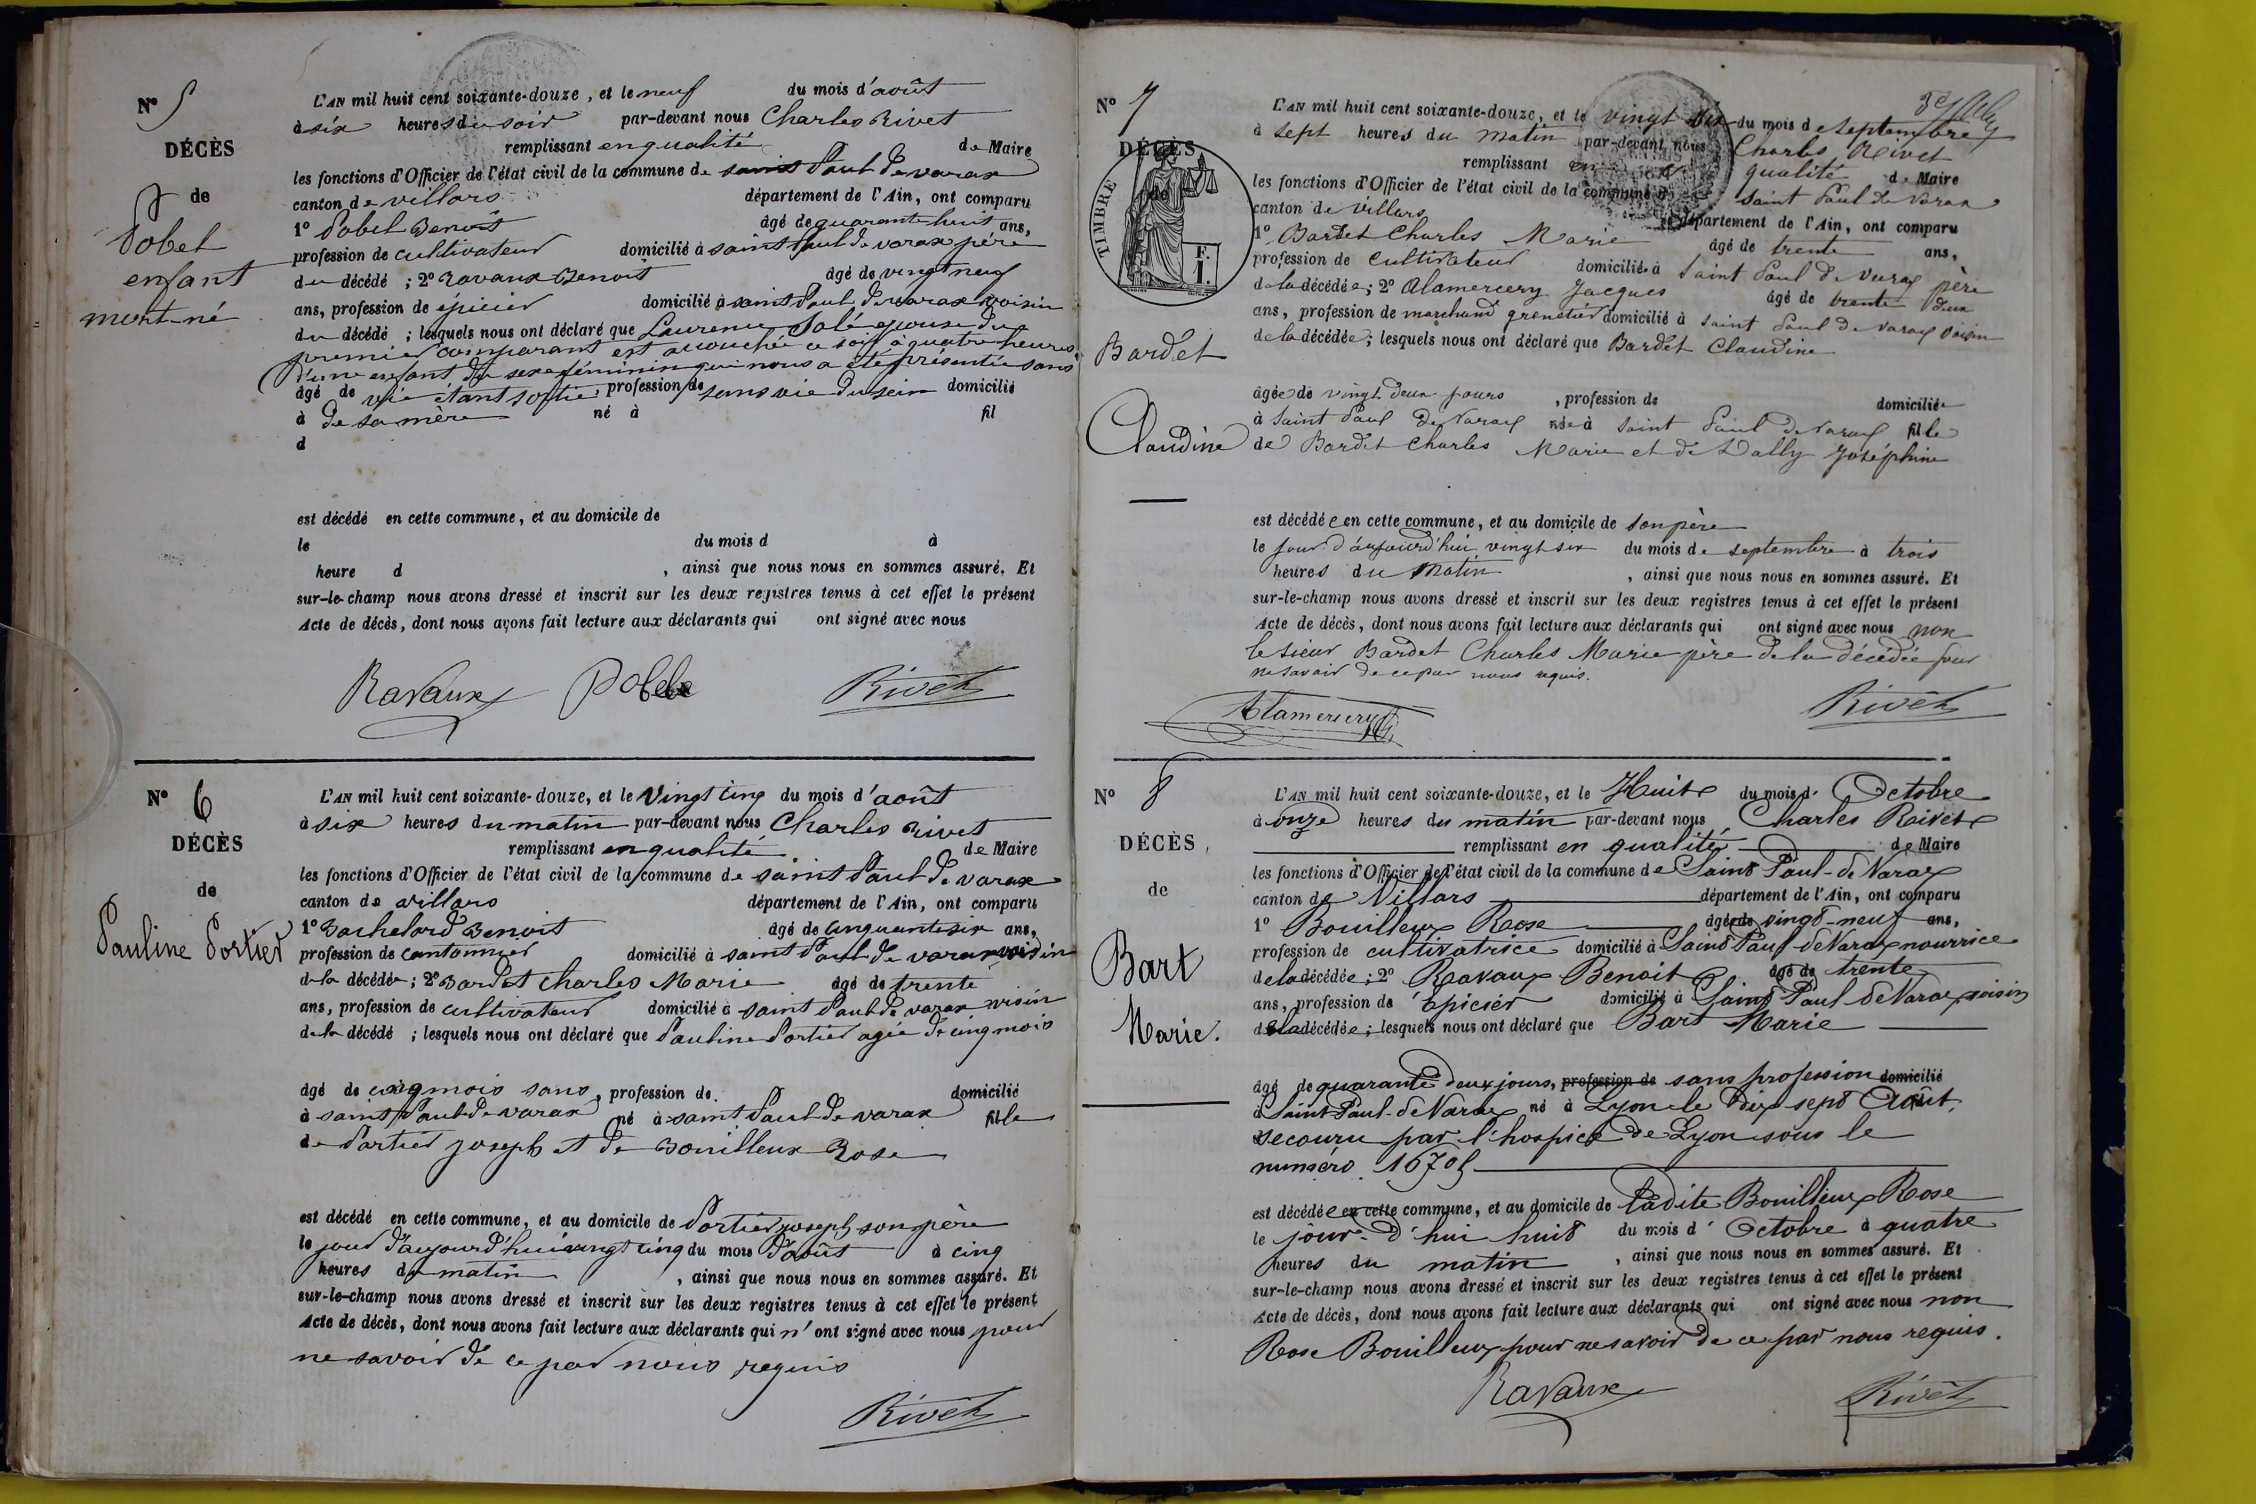 N° 5
DÉCÈS
de
Pobel
enfant
mort-né
L'AN mil huit cent soixante-douze, et le neuf du mois d'août
à six heures du soir par-devant nous Charles Rivet
remplissant en qualité de Maire
les fonctions d'Officier de l'état civil de la commune de saint Paul de varax
canton de villars département de l'Ain, ont comparu
1° Pobel Benoit âgé de quarante huit ans,
profession de cultivateur domicilié à saint Paul de varax père
du décédé ; 2° Ravaux Benoit âgé de vingt neuf
ans, profession de épicier domicilié à saint Paul de varax voisin
du décédé ; lesquels nous ont déclaré que Laurence Salé epouse du
premier comparant est accouchée ce soir à quatre heures
d'une enfant du sexe féminin qui nous a été présentée sans
âgé de vie étant sortie profession de sans vie du sein domicilié
à de sa mère né à fil
d
est décédé en cette commune, et au domicile de
le du mois d à
heure d , ainsi que nous nous en sommes assuré. Et
sur-le-champ nous avons dressé et inscrit sur les deux registres tenus à cet effet le présent
Acte de décès, dont nous avons fait lecture aux déclarants qui ont signé avec nous
Ravaux Rivet
N° 6
DÉCÈS
de
Pauline Portier
L'AN mil huit cent soixante-douze, et le Vingt cinq du mois d'août
à six heures du matin par-devant nous Charles Rivet
remplissant en qualité de Maire
les fonctions d'Officier de l'état civil de la commune de saint Paul de varax
canton de villars département de l'Ain, ont comparu
1° Bachelard Benoit âgé de cinquante six ans,
profession de cantonnier domicilié à saint Paul de varax voisin
de la décédée ; 2° Bardet Charles Marie âgé de trente
ans, profession de cultivateur domicilié à saint Paul de varax voisin
de la décédé ; lesquels nous ont déclaré que Pauline Portier agée de cinq mois
âgé de cinq mois sans, profession de domicilié
à saint Paul de varax né à saint Paul de varax fille
de Portier joseph et de Bouilleux Rose
est décédé en cette commune, et au domicile de Portier joseph son père
le jour d'aujourd'hui vingt cinq du mois d'août à cinq
heures du matin , ainsi que nous nous en sommes assuré. Et
sur-le-champ nous avons dressé et inscrit sur les deux registres tenus à cet effet le présent
Acte de décès, dont nous avons fait lecture aux déclarants qui n'ont signé avec nous pour
ne savoir de ce par nous requis
Rivet
N° 7
DÉCÈS
de
TIMBRE
F.
1.
Bardet
Claudine
L'AN mil huit cent soixante-douze, et le vingt six du mois de septembre
à sept heures du matin par-devant nous Charles Rivet
remplissant en qualité de Maire
les fonctions d'Officier de l'état civil de la commune de saint Paul de Varax
canton de villars département de l'Ain, ont comparu
1° Bardet Charles Marie âgé de trente ans,
profession de cultivateur domicilié à saint Paul de Varax père
de la décédée ; 2° Alamercery Jacques âgé de trente deux
ans, profession de marchand grenetier domicilié à saint Paul de Varax voisin
de la décédée ; lesquels nous ont déclaré que Bardet Claudine
âgée de vingt deux jours , profession de domicilié
à Saint Paul de Varax née à Saint Paul de Varax fille
de Bardet Charles Marie et de Dally Joséphine
est décédée en cette commune, et au domicile de son père
le jour d'aujourd'hui vingt six du mois de septembre à trois
heures du matin , ainsi que nous nous en sommes assuré. Et
sur-le-champ nous avons dressé et inscrit sur les deux registres tenus à cet effet le présent
Acte de décès, dont nous avons fait lecture aux déclarants qui ont signé avec nous non
le sieur Bardet Charles Marie père de la décédée pour
ne savoir de ce par nous requis.
Alamercery Rivet
N° 8
DÉCÈS
de
Bart
Marie.
L'AN mil huit cent soixante-douze, et le Huit du mois d' Octobre
à onze heures du matin par-devant nous Charles Rivet
remplissant en qualité de Maire
les fonctions d'Officier de l'état civil de la commune de Saint Paul-de Varax
canton de Villars département de l'Ain, ont comparu
1° Bouilleux Rose âgée de vingt-neuf ans,
profession de cultivatrice domicilié à Saint Paul de Varax nourrice
de la décédée ; 2° Ravaux Benoit âgé de trente
ans, profession de Epicier domicilié à Saint Paul de Varax voisin
de la décédée ; lesquels nous ont déclaré que Bart Marie
âgé de quarante deux jours, profession de sans profession domicilié
à Saint Paul-de Varax né à Lyon le dix sept Août,
secouru par l'hospice de Lyon sous le
numéro 16705
est décédée en cette commune, et au domicile de ladite Bouilleux Rose
le jour-d'hui huit du mois d' Octobre à quatre
heures du matin , ainsi que nous nous en sommes assuré. Et
sur-le-champ nous avons dressé et inscrit sur les deux registres tenus à cet effet le présent
Acte de décès, dont nous avons fait lecture aux déclarants qui ont signé avec nous non
Rose Bouilleux pour ne savoir de ce par nous requis.
Ravaux Rivet